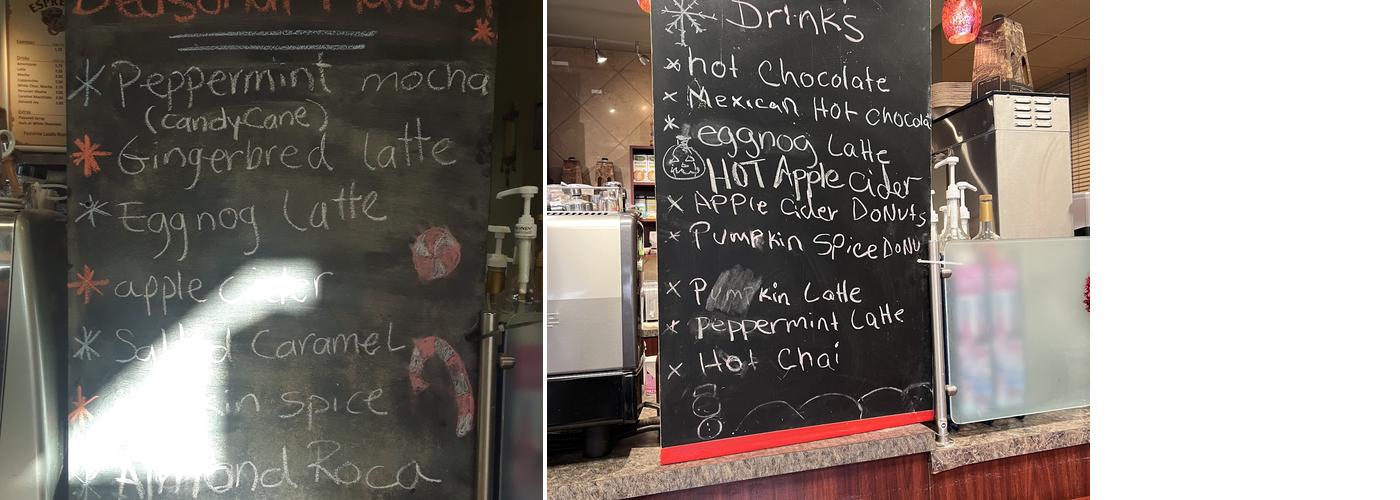 Seasonal Flavors!
Peppermint mocha
(candycane)
Gingerbred latte
Eggnog Latte
apple cider
Salted Caramel
spice
Almond Roca
Drinks
hot Chocolate
Mexican Hot chocola
eggnog Latte
HOT Apple cider
APPle cider DoNuts
Pumpkin SpiceDoNu
Pumpkin Latte
peppermint Latte
Hot Chai